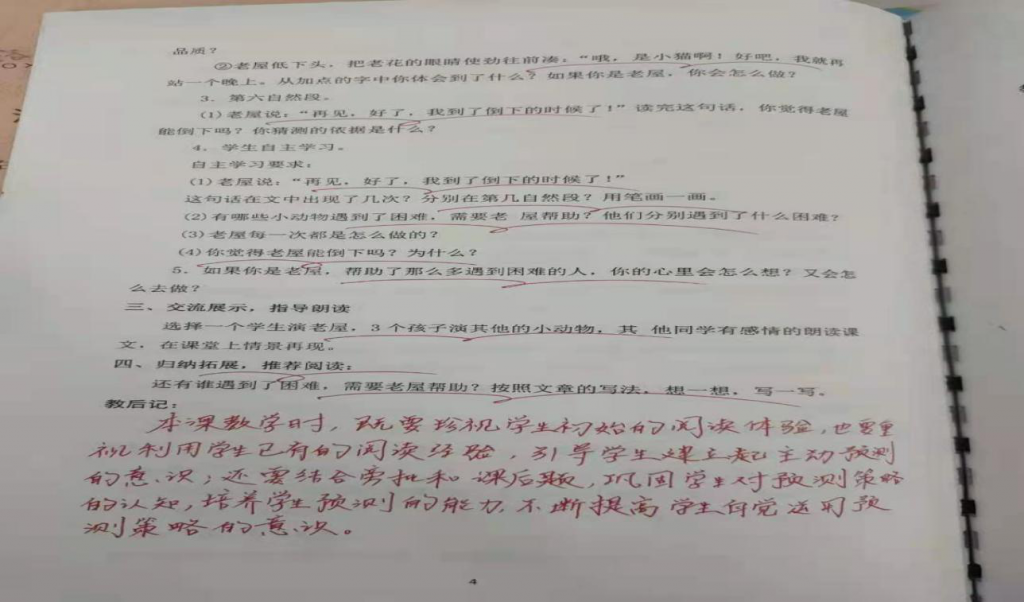 品质？
②老屋低下头，把老花的眼睛使劲往前凑：“哦，是小猫啊！好吧，我就再
站一个晚上。从加点的字中你体会到了什么？如果你是老屋，你会怎么做？
3．第六自然段。
(1)老屋说：“再见，好了，我到了倒下的时候了！”读完这句话，你觉得老屋
能倒下吗？你猜测的依据是什么？
4．学生自主学习。
自主学习要求：
(1)老屋说：“再见，好了，我到了倒下的时候了！”
这句话在文中出现了几次？分别在第几自然段？用笔画一画。
(2)有哪些小动物遇到了困难，需要老 屋帮助？他们分别遇到了什么困难？
(3)老屋每一次都是怎么做的？
(4)你觉得老屋能倒下吗？为什么？
5．如果你是老屋，帮助了那么多遇到困难的人，你的心里会怎么想？又会怎
么去做？
三、交流展示，指导朗读
选择一个学生演老屋，3个孩子演其他的小动物，其 他同学有感情的朗读课
文，在课堂上情景再现。
四、归纳拓展，推荐阅读：
还有谁遇到了困难，需要老屋帮助？按照文章的写法，想一想，写一写。
教后记：
本课教学时，既要珍视学生初始的阅读体验，也要重
视利用学生已有的阅读经验，引导学生建立起主动预测
的意识；还要结合旁批和课后题，巩固学生对预测策略
的认知，培养学生预测的能力，不断提高学生自觉运用预
测策略的意识。
4